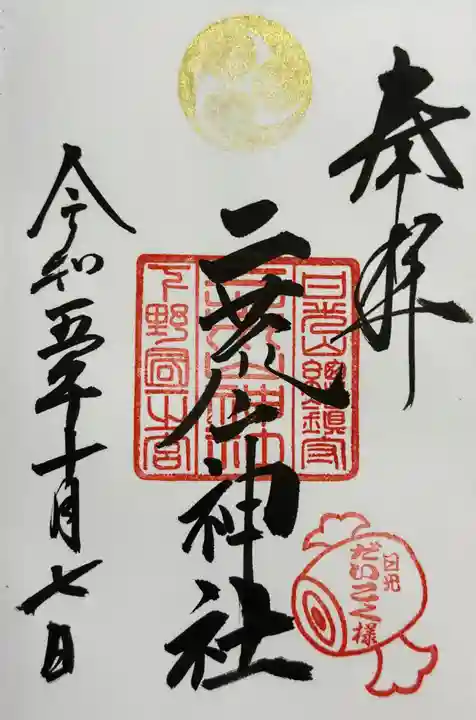 奉拝
日光山總鎮守
二荒山神社
二荒山神社
下野國一宮
令和五年十月七日
日光
だいこく様